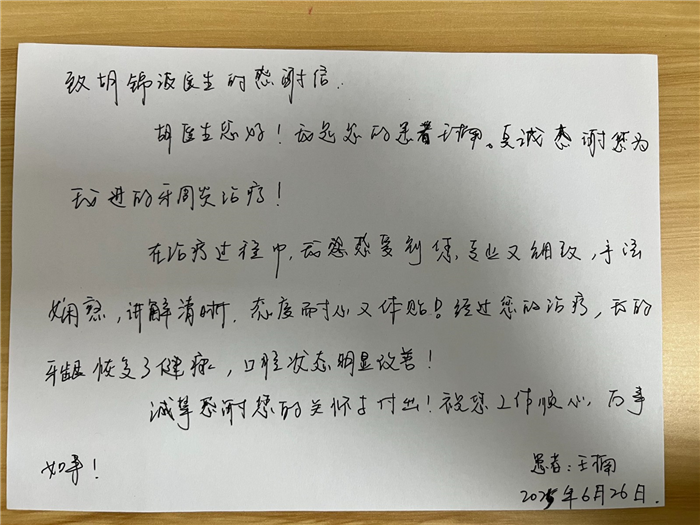 致胡锦波医生的感谢信.
胡医生您好！我是您的患者王楠。真诚感谢您为
我进的牙周炎治疗！
在治疗过程中，我感受到您，专业又细致，手法
娴熟，讲解清晰，态度耐心又体贴！经过您的治疗，我的
牙龈恢复了健康，口腔状态明显改善！
诚挚感谢您的关怀与付出！祝您工作顺心，万事
如意！
患者：王楠
2025年6月26日.